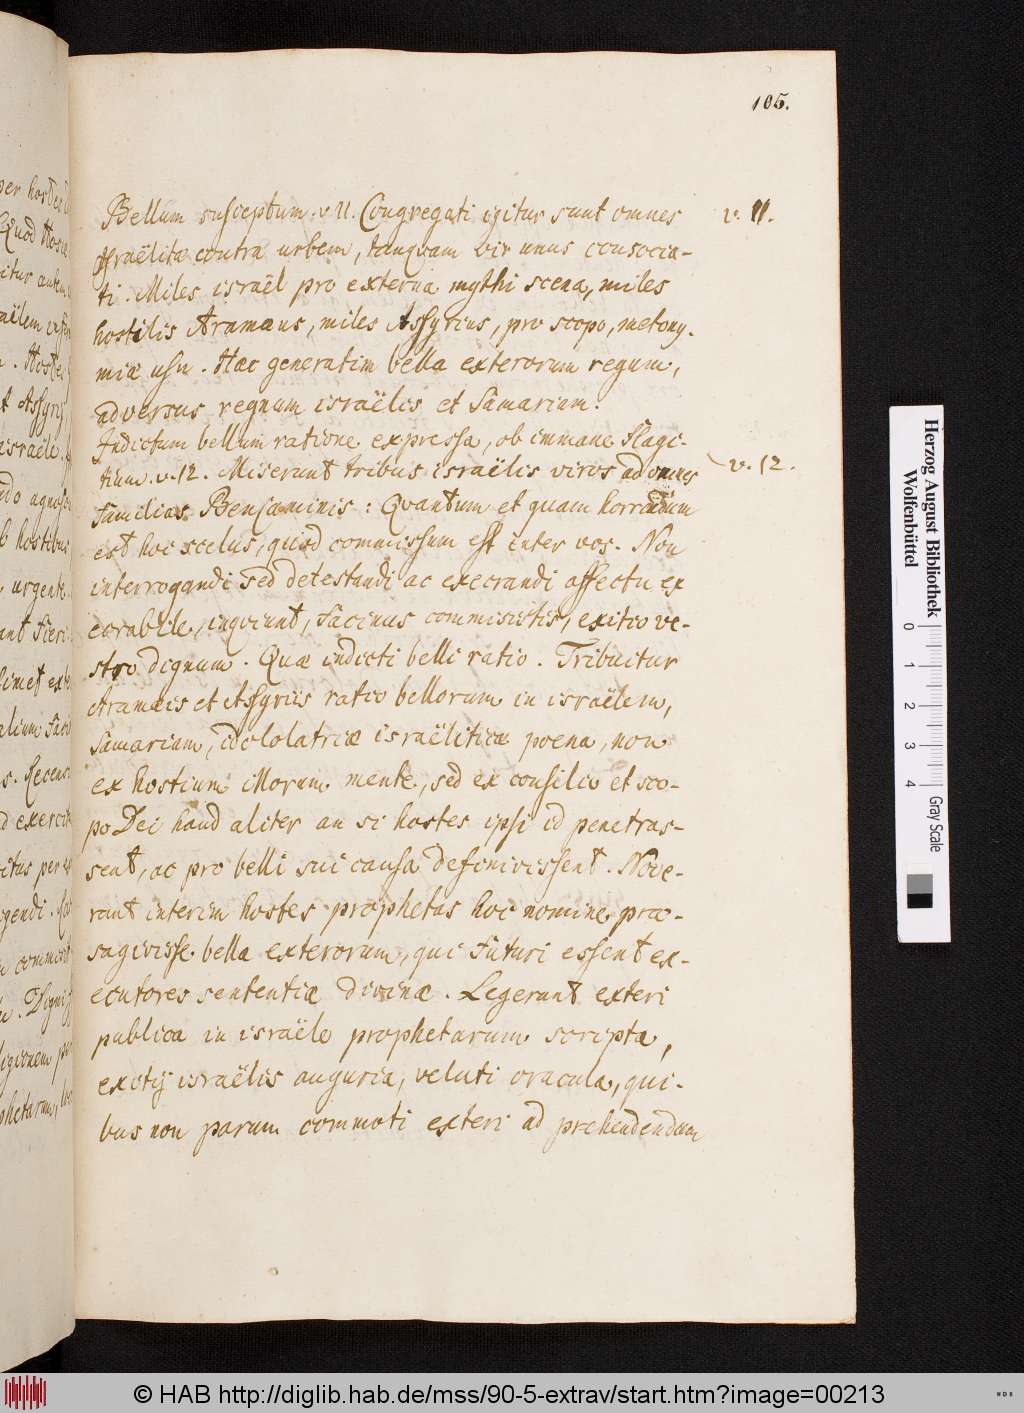 105.
Bellum susceptum. v 11. Congregati igitur sunt omnes
v. 11.
Israëlitæ contra urbem, tanquam vir unus consocia-
ti. Miles israël pro externa mythi scena, miles
hostilis Aramæus, miles Assyrius, pro scopo, metony-
miæ usu. Hæc generatim bella exterorum regum,
adversus regnum israëlis et Samariam.
Indictum bellum ratione expressa, ob immane flagi-
tium. v. 12. Miserunt tribus israëlis viros ad omnes
v. 12.
familias Benjaminis: Quantum et quam horrendum
est hoc scelus, quod commissum est inter vos. Non
interrogandi sed detestandi ac execrandi affectu ex
ecrabile, inquiunt, facinus commisistis, exitio ve-
stro dignum. Quæ indicti belli ratio. Tribuitur
Aramæis et Assyriis ratio bellorum in israëlem,
Samariam, idololatriæ israëliticæ poena, non
ex hostium illorum mente, sed ex consilio et sco-
po Dei haud aliter an si hostes ipsi id penetras-
sent, ac pro belli sui causa definivissent. Nove-
rant interim hostes prophetas hoc nomine præ-
sagivisse bella exterorum, qui futuri essent ex-
ecutores sententiæ divinæ. Legerant exteri
publica in israële prophetarum scripta,
exitij israëlis auguria, veluti oracula, qui-
bus non parum commoti exteri ad prehendendam
Herzog August Bibliothek
Wolfenbüttel
0 1 2 3 4
Gray Scale
© HAB http://diglib.hab.de/mss/90-5-extrav/start.htm?image=00213